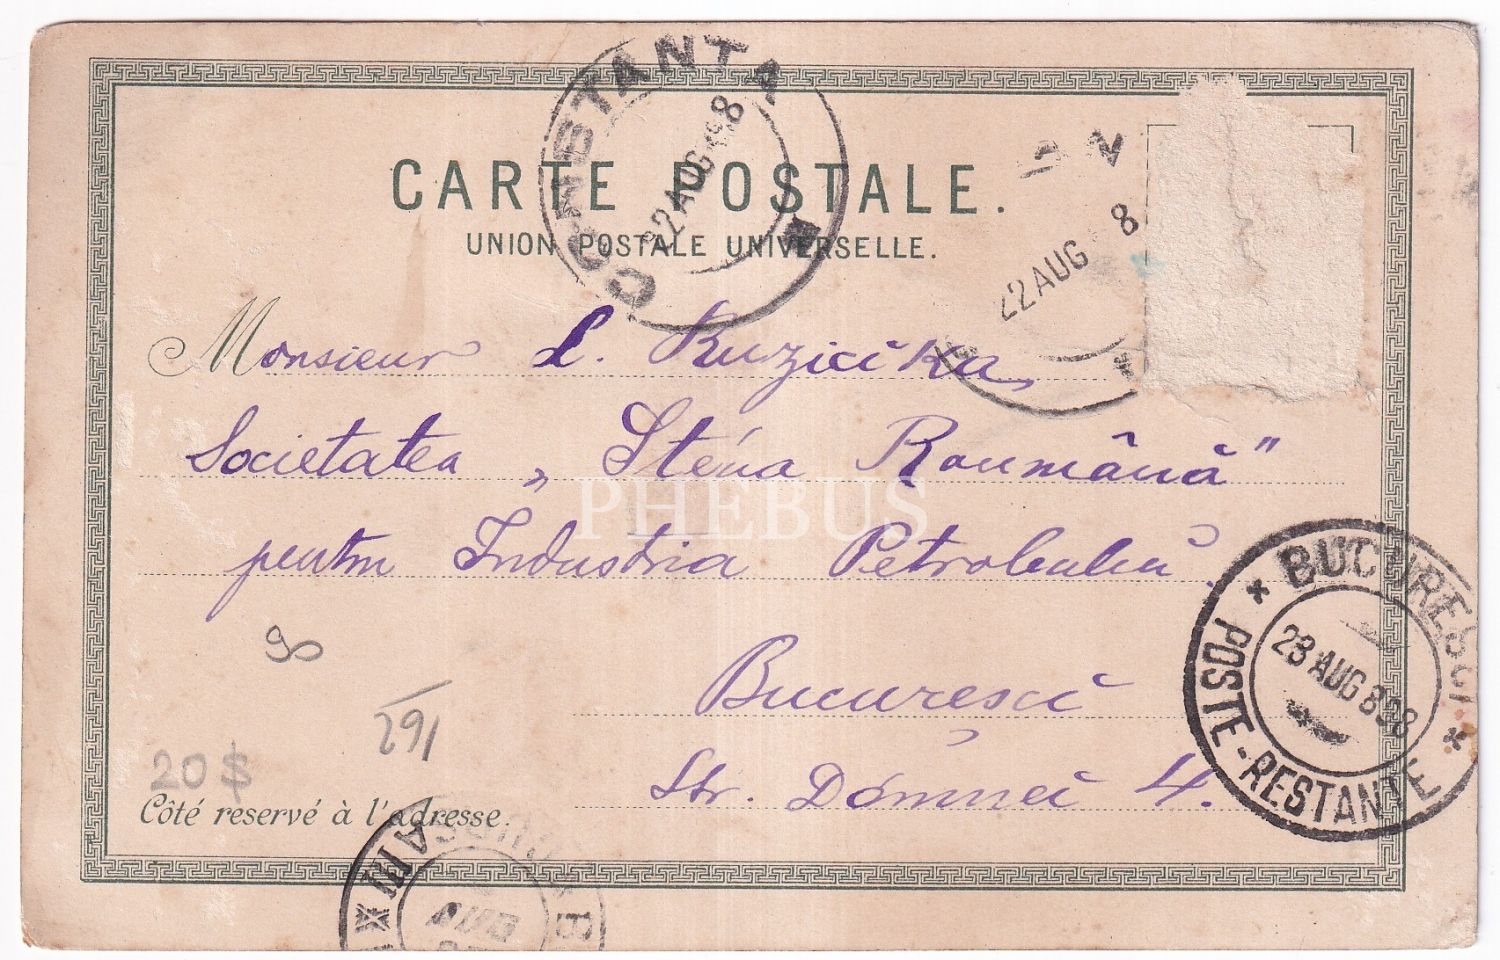 CONSTANTA
22 AUG 98
22 AUG 8
CARTE POSTALE.
UNION POSTALE UNIVERSELLE.
Monsieur L. Ruzicika,
Societatea „Steua Roumână"
pentru Industria Petroleului.
PHEBUS
BUCURESCI
23 AUG 898
POSTE-RESTANTE
90
Bucuresci
291
Str. Dómnei 4.
20 $
Côté reservé à l'adresse.